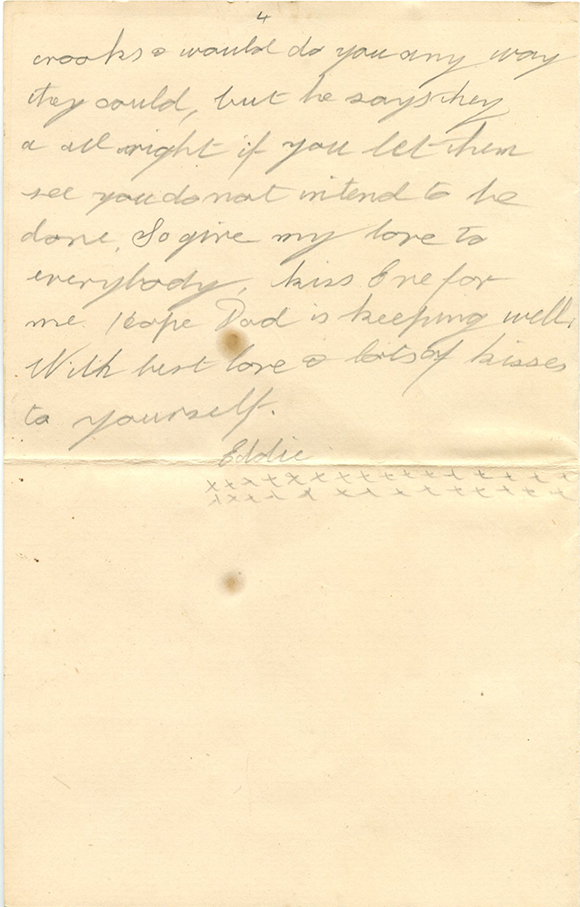 4
crooks & would do you any way
they could, but he says they
a all right if you let them
see you do not intend to be
done. So give my love to
everybody, kiss Ene for
me. Hope Dad is keeping well,
With best love & lots of kisses
to yourself.
Eddie